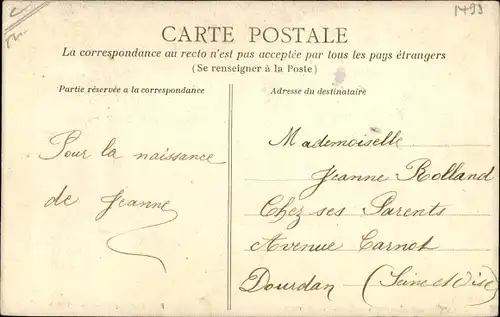 1493
CARTE POSTALE
La correspondance au recto n'est pas acceptée par tous les pays étrangers
(Se renseigner à la Poste)
Partie réservée a la correspondance
Adresse du destinataire
Pour la naissance
de Jeanne
Mademoiselle
Jeanne Rolland
Chez ses Parents
Avenue Carnot
Dourdan (Seine et Oise)